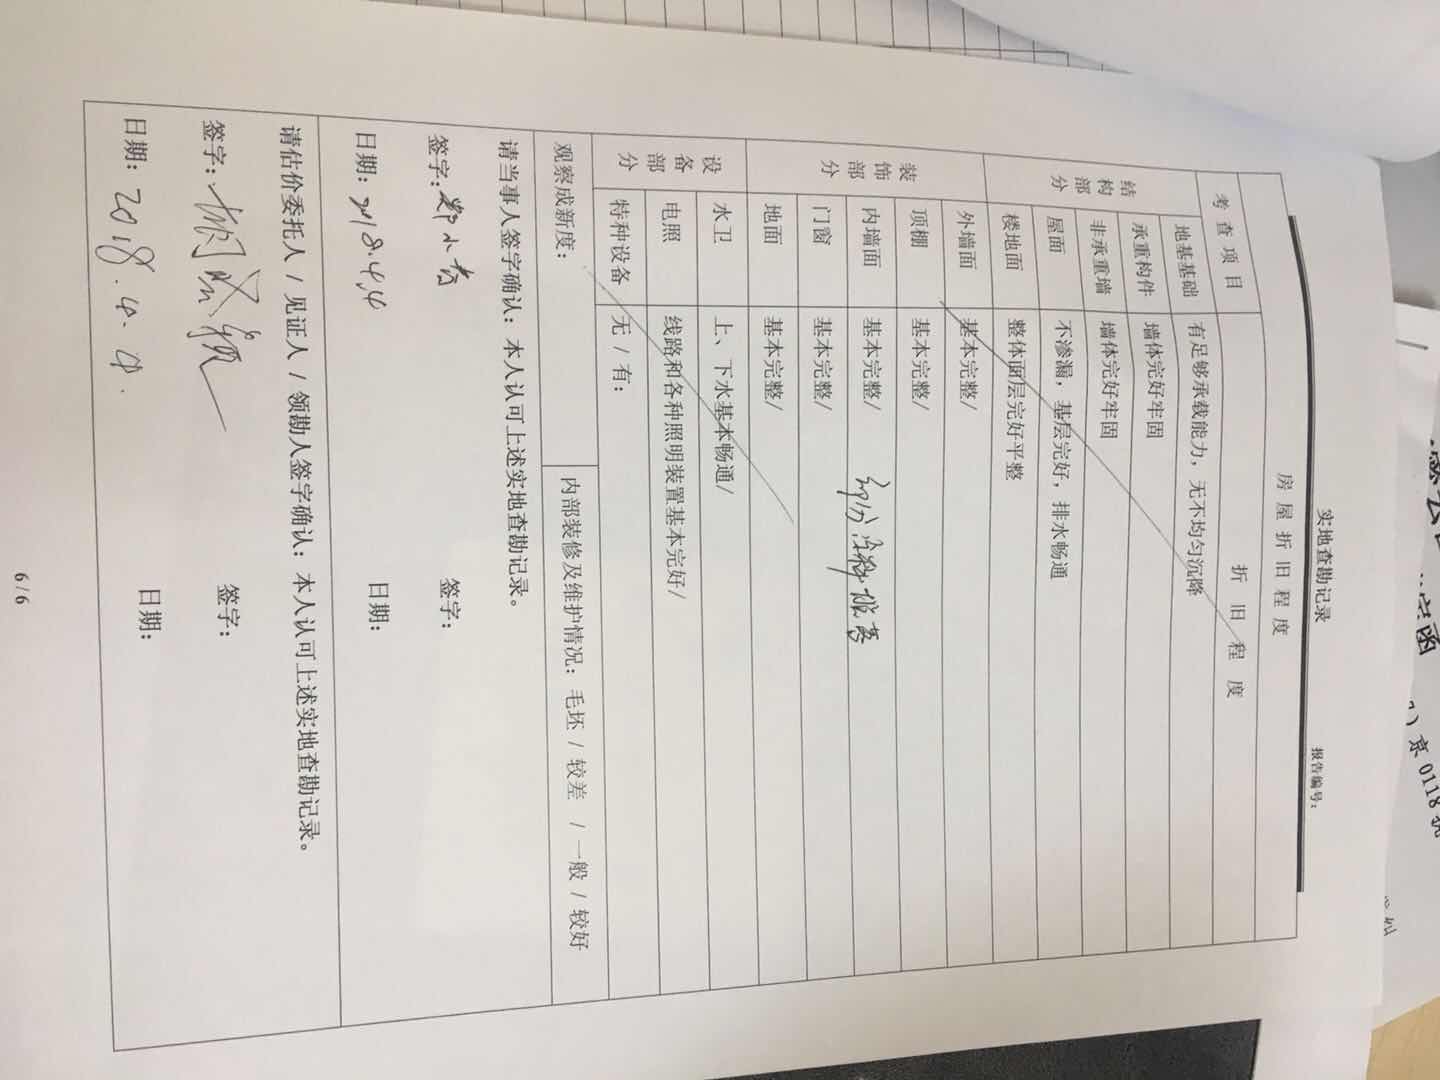 实地查勘记录
报告编号：
房屋折旧程度
考查项目 折旧程度
结构部分 地基基础 有足够承载能力，无不均匀沉降
承重构件 墙体完好牢固
非承重墙 墙体完好牢固
屋面 不渗漏，基层完好，排水畅通
楼地面 整体面层完好平整
装饰部分 外墙面 基本完整/
顶棚 基本完整/
内墙面 基本完整/ 部分
门窗 基本完整/
地面 基本完整/
设备部分 水卫 上、下水基本畅通/
电照 线路和各种照明装置基本完好/
特种设备 无/有：
观察成新度： 内部装修及维护情况：毛坯/较差 /一般/较好
请当事人签字确认：本人认可上述实地查勘记录。
签字： 签字：
日期：2018.4.4 日期：
请估价委托人/见证人/领勘人签字确认：本人认可上述实地查勘记录。
签字： 签字：
日期：2018.4.4. 日期：
6/6
京0118
函